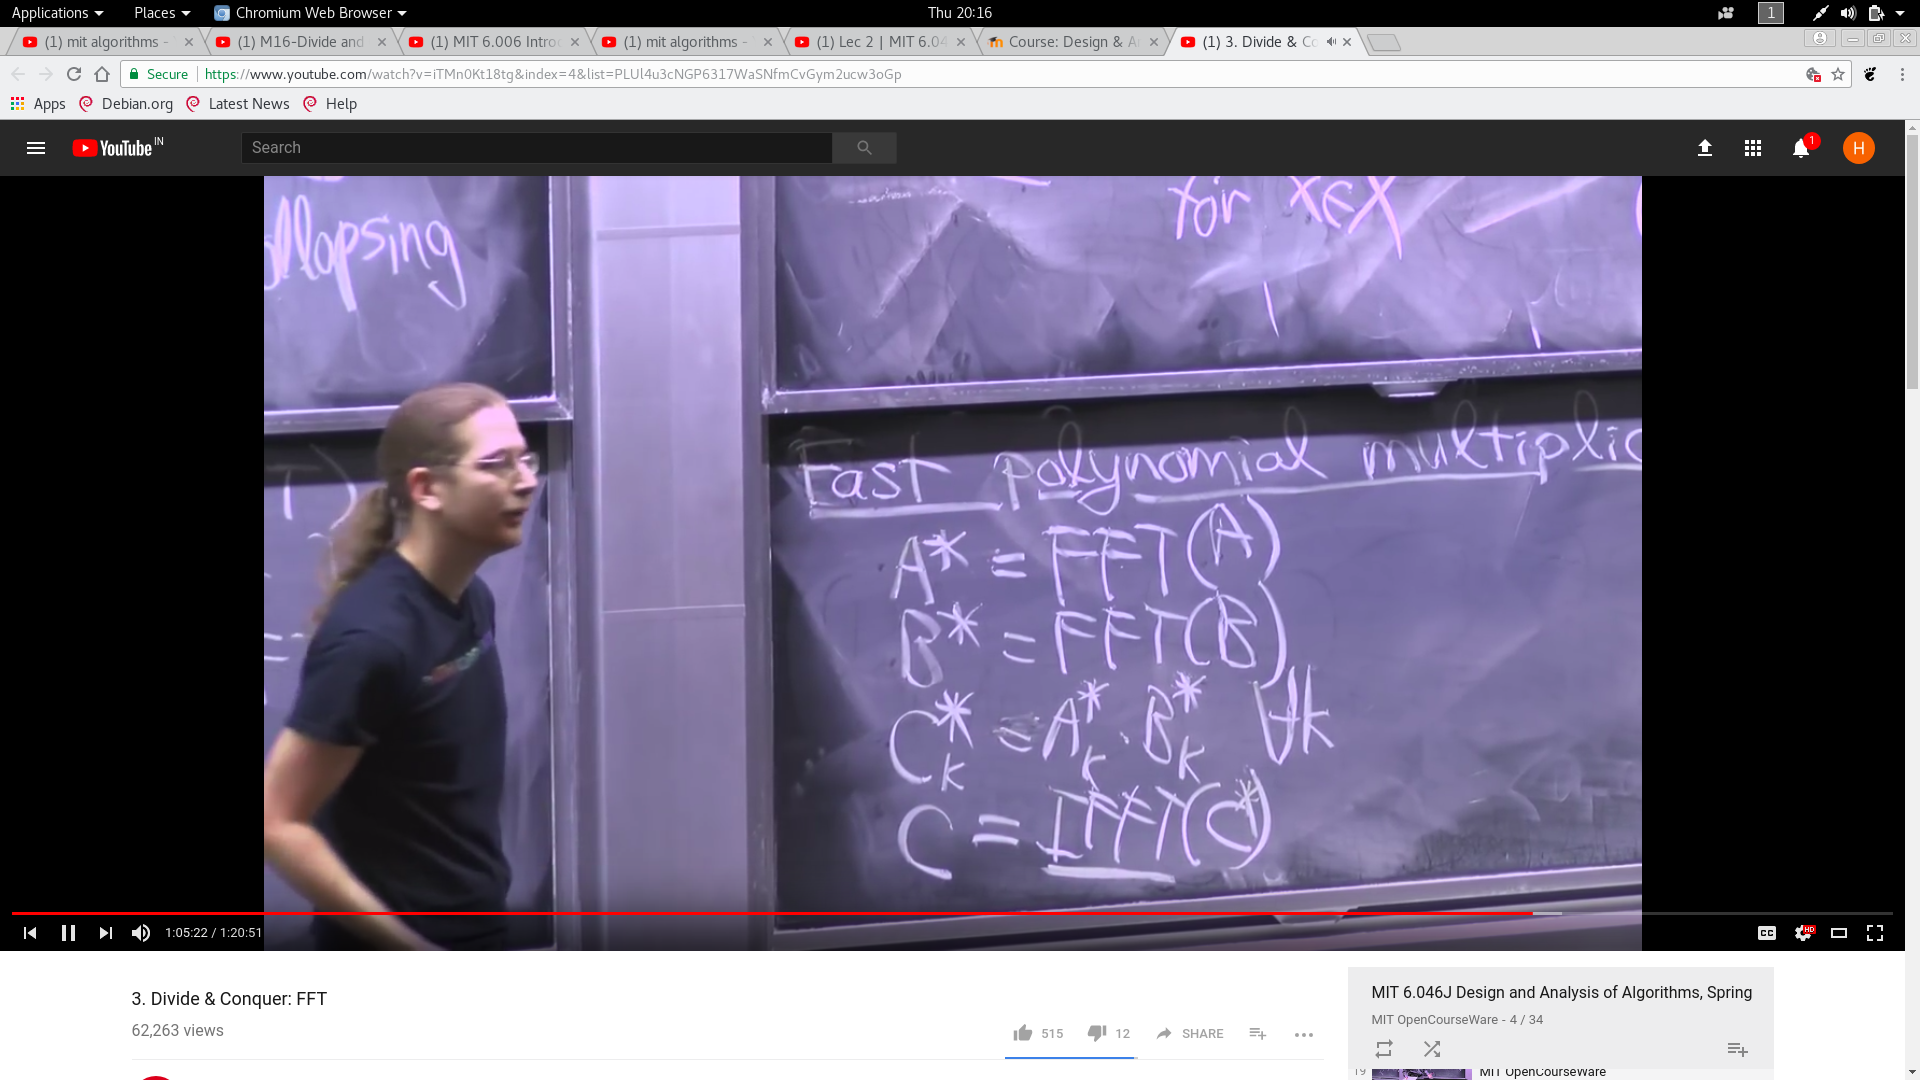 Applications Places Chromium Web Browser Thu 20:16 1
(1) mit algorithms - (1) M16-Divide and (1) MIT 6.006 Intro (1) mit algorithms - (1) Lec 2 | MIT 6.04 Course: Design & A (1) 3. Divide & Co
Secure https://www.youtube.com/watch?v=iTMn0Kt18tg&index=4&list=PLUl4u3cNGP6317WaSNfmCvGym2ucw3oGp
Apps Debian.org Latest News Help
YouTube IN Search 1 H
for x∈X
llapsing
Fast polynomial multiplic
A* = FFT(A)
B* = FFT(B)
C*k = A*k · B*k ∀k
C = IFFT(C*)
1:05:22 / 1:20:51 CC HD
3. Divide & Conquer: FFT
62,263 views
515 12 SHARE
MIT 6.046J Design and Analysis of Algorithms, Spring
MIT OpenCourseWare - 4 / 34
19 MIT OpenCourseWare